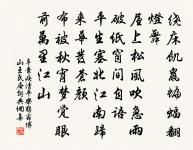 繞床飢鼠蝙蝠翻
燈舞
屋上松風吹急雨
破紙窗間自語
平生塞北江南歸
來華髮蒼顏
布被秋宵夢覺眼
前萬里江山
辛棄疾清平樂獨宿博
山王氏庵